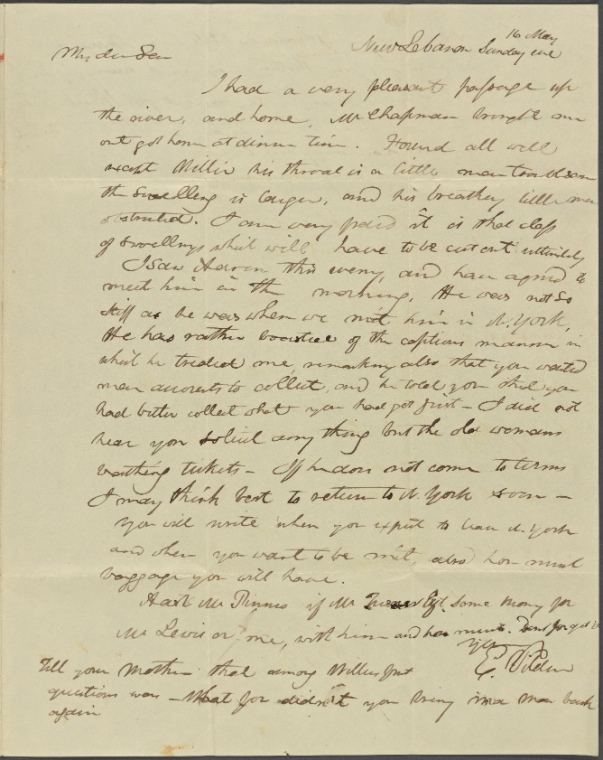 16 May
New Lebanon Sunday eve
My dear Sam
I had a very pleasant passage up
the river, and home, Mr Chapman brought me
out got home at dinner time. Found all well
except Willie his throat is a little more troublesome
the swelling is larger, and his breathing little more
obstructed. I am very it is that class
of swellings which will have to be cut out ultimately
I saw Aaron this evening, and have agreed to
meet him in the morning. He was not so
stiff as he was when we met him in N. York,
He has rather of the captious manner in
which he treated me, remarking also that you wanted
more accounts to collect, and he told you that you
had better collect what you had got first - I did not
hear you solicit any thing but the old womans
washing tickets - If he does not come to terms
I may think best to return to N. York soon -
You will write when you expect to leave N. York
and when you want to be met, also how much
baggage you will have.
Ask Mr if Mr some money for
Mr Lewis or me, with him and
Yrs
E. Tilden
Tell your Mother that among Willies first
questions was - What for didn't you bring ma ma back
again